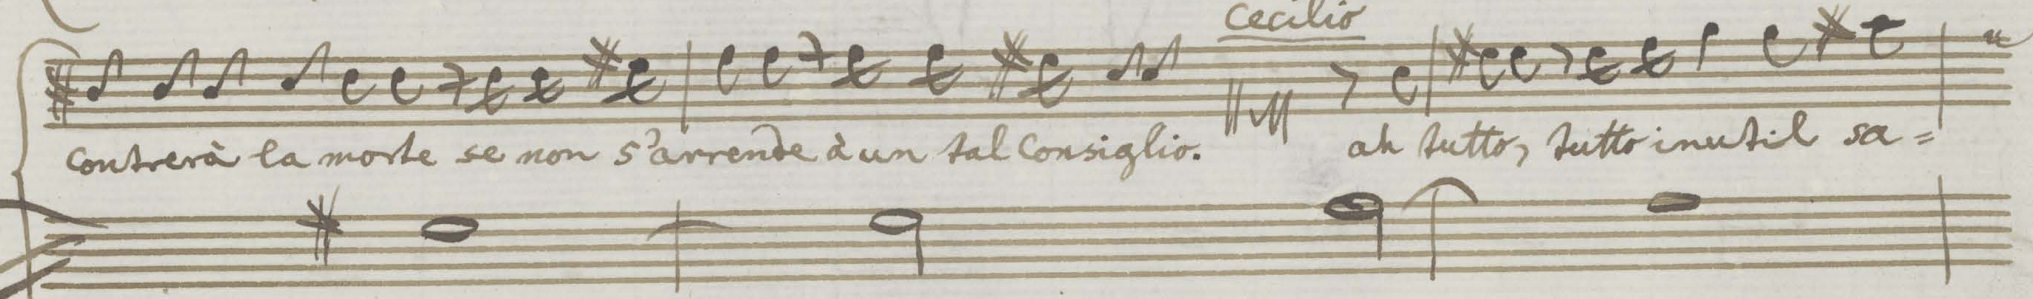 Cecilio
contrerà la morte se non s'arrende à un tal Consiglio. ah tutto, tutto inutil sa=